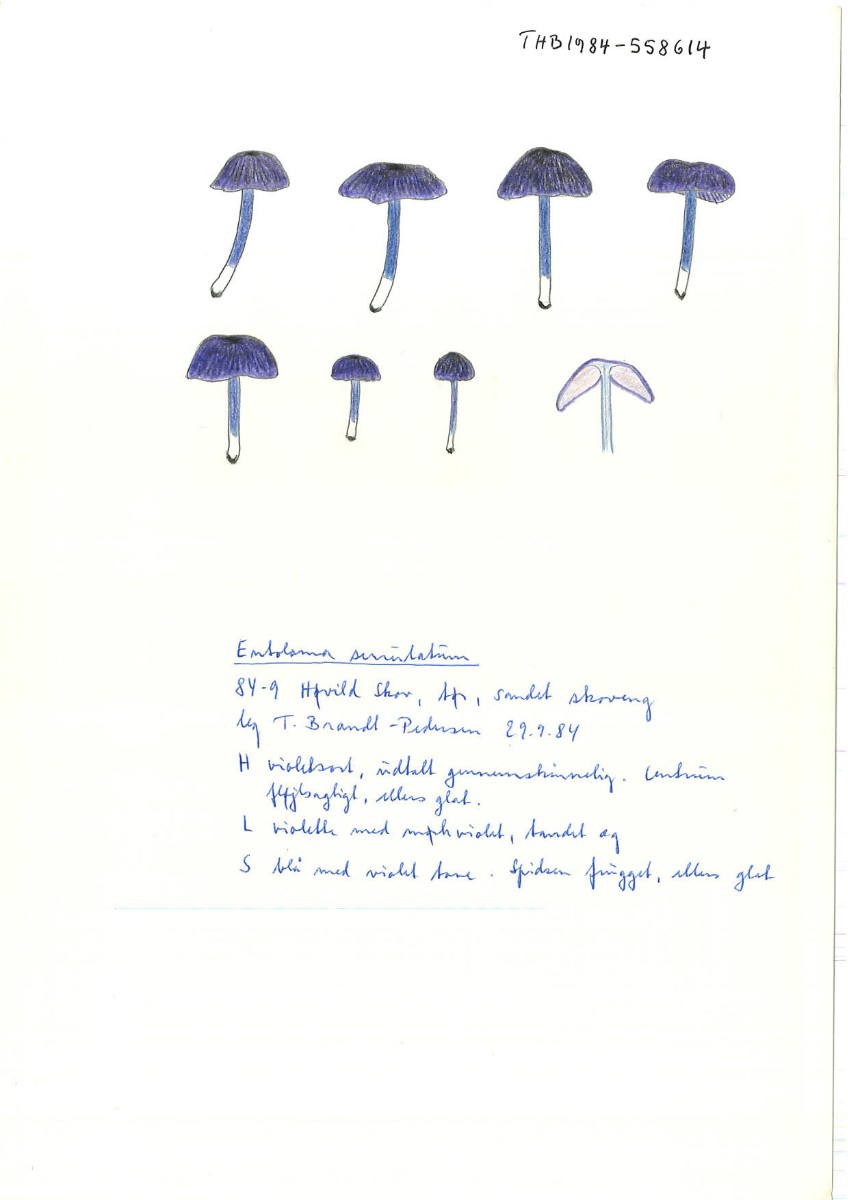 THB1984-558614
Entoloma serrulatum
84-9 Højrild Skov, sandet skoveng
leg T. Brandt-Pedersen 29.9.84
H violetsort, udtalt gennemskinnelig. Centrum
fløjlsagtigt, ellers glat.
L violette med mørkviolet, tandet æg
S blå med violet tone. Spidsen fnugget, ellers glat